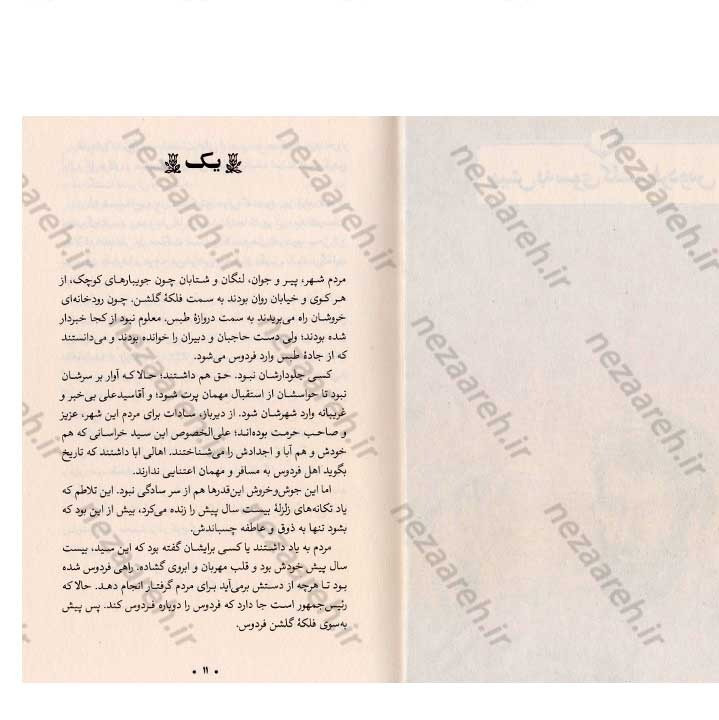 یک
مردم شهر، پیر و جوان، لنگان و شتابان چون جویبارهای کوچک، از
هر کوی و خیابان روان بودند به سمت فلکهٔ گلشن. چون رودخانه‌ای
خروشان راه می‌بریدند به سمت دروازهٔ طبس. معلوم نبود از کجا خبردار
شده بودند؛ ولی دست حاجبان و دبیران را خوانده بودند و می‌دانستند
که از جادهٔ طبس وارد فردوس می‌شود.
کسی جلودارشان نبود. حق هم داشتند؛ حالا که آوار بر سرشان
نبود تا حواسشان از استقبال مهمان پرت شود؛ و آقاسیدعلی بی‌خبر و
غریبانه وارد شهرشان شود. از دیرباز، سادات برای مردم این شهر، عزیز
و صاحب حرمت بوده‌اند؛ علی‌الخصوص این سید خراسانی که هم
خودش و هم آبا و اجدادش را می‌شناختند. اهالی ابا داشتند که تاریخ
بگوید اهل فردوس به مسافر و مهمان اعتنایی ندارند.
اما این جوش‌وخروش این‌قدرها هم از سر سادگی نبود. این تلاطم که
یاد تکانه‌های زلزلهٔ بیست سال پیش را زنده می‌کرد، بیش از این بود که
بشود تنها به ذوق و عاطفه چسباندش.
مردم به یاد داشتند یا کسی برایشان گفته بود که این سید، بیست
سال پیش خودش بود و قلب مهربان و ابروی گشاده. راهی فردوس شده
بود تا هرچه از دستش برمی‌آید برای مردم گرفتار انجام دهد. حالا که
رئیس‌جمهور است جا دارد که فردوس را دوباره فردوس کند. پس پیش
به‌سوی فلکهٔ گلشن فردوس.
• ۱۱ •
nezaareh.ir
nezaareh.ir
nezaareh.ir
nezaareh.ir
nezaareh.ir
nezaareh.ir
nezaareh.ir
nezaareh.ir
nezaareh.ir